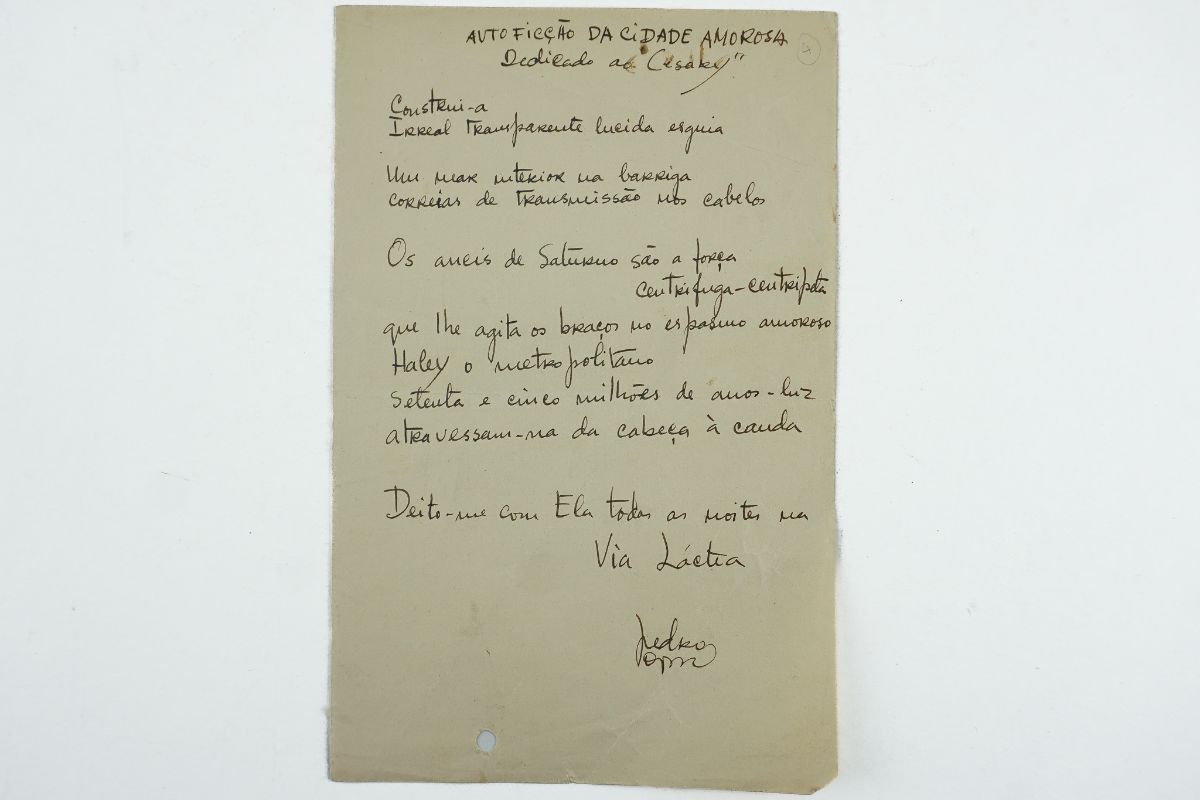 AUTOFICÇÃO DA CIDADE AMOROSA
4
Dedicado ao Cesariny"
Construi-a
Irreal transparente lucida esguia
Um mar interior na barriga
correias de transmissão nos cabelos
Os aneis de Saturno são a força
centrifuga-centripeta
que lhe agita os braços no espasmo amoroso
Haley o metropolitano
Setenta e cinco milhões de anos-luz
atravessam-na da cabeça à cauda
Deito-me com Ela todas as noites na
Via Láctea
Pedro